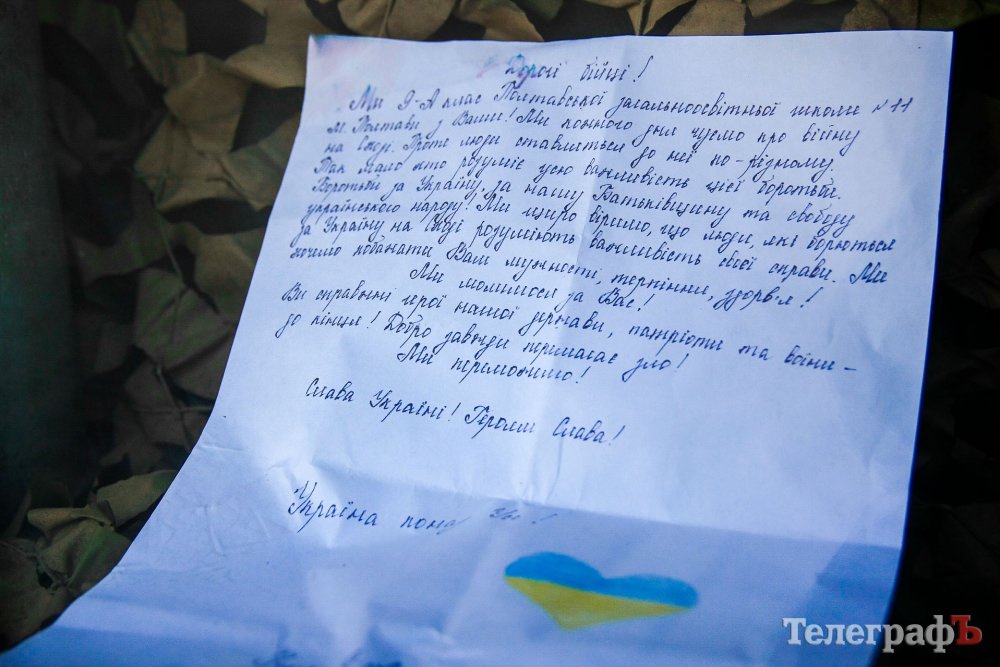 Дорогі бійці!
Ми 9-А клас Полтавської загальноосвітньої школи №11
м. Полтави з Вами! Ми кожного дня чуємо про війну
на Сході. Проте люди ставляться до неї по-різному.
Так мало хто розуміє усю важливість цієї боротьби.
Боротьби за Україну, за нашу Батьківщину та свободу
українського народу! Ми щиро віримо, що люди, які борються
за Україну на Сході розуміють важливість своєї справи. Ми
хочемо побажати Вам мужності, терпіння, здоров'я!
Ми молимося за Вас!
Ви справжні герої нашої держави, патріоти та воїни -
до кінця! Добро завжди перемагає зло!
Ми переможемо!
Слава Україні! Героям Слава!
Україна
ТелеграфЪ